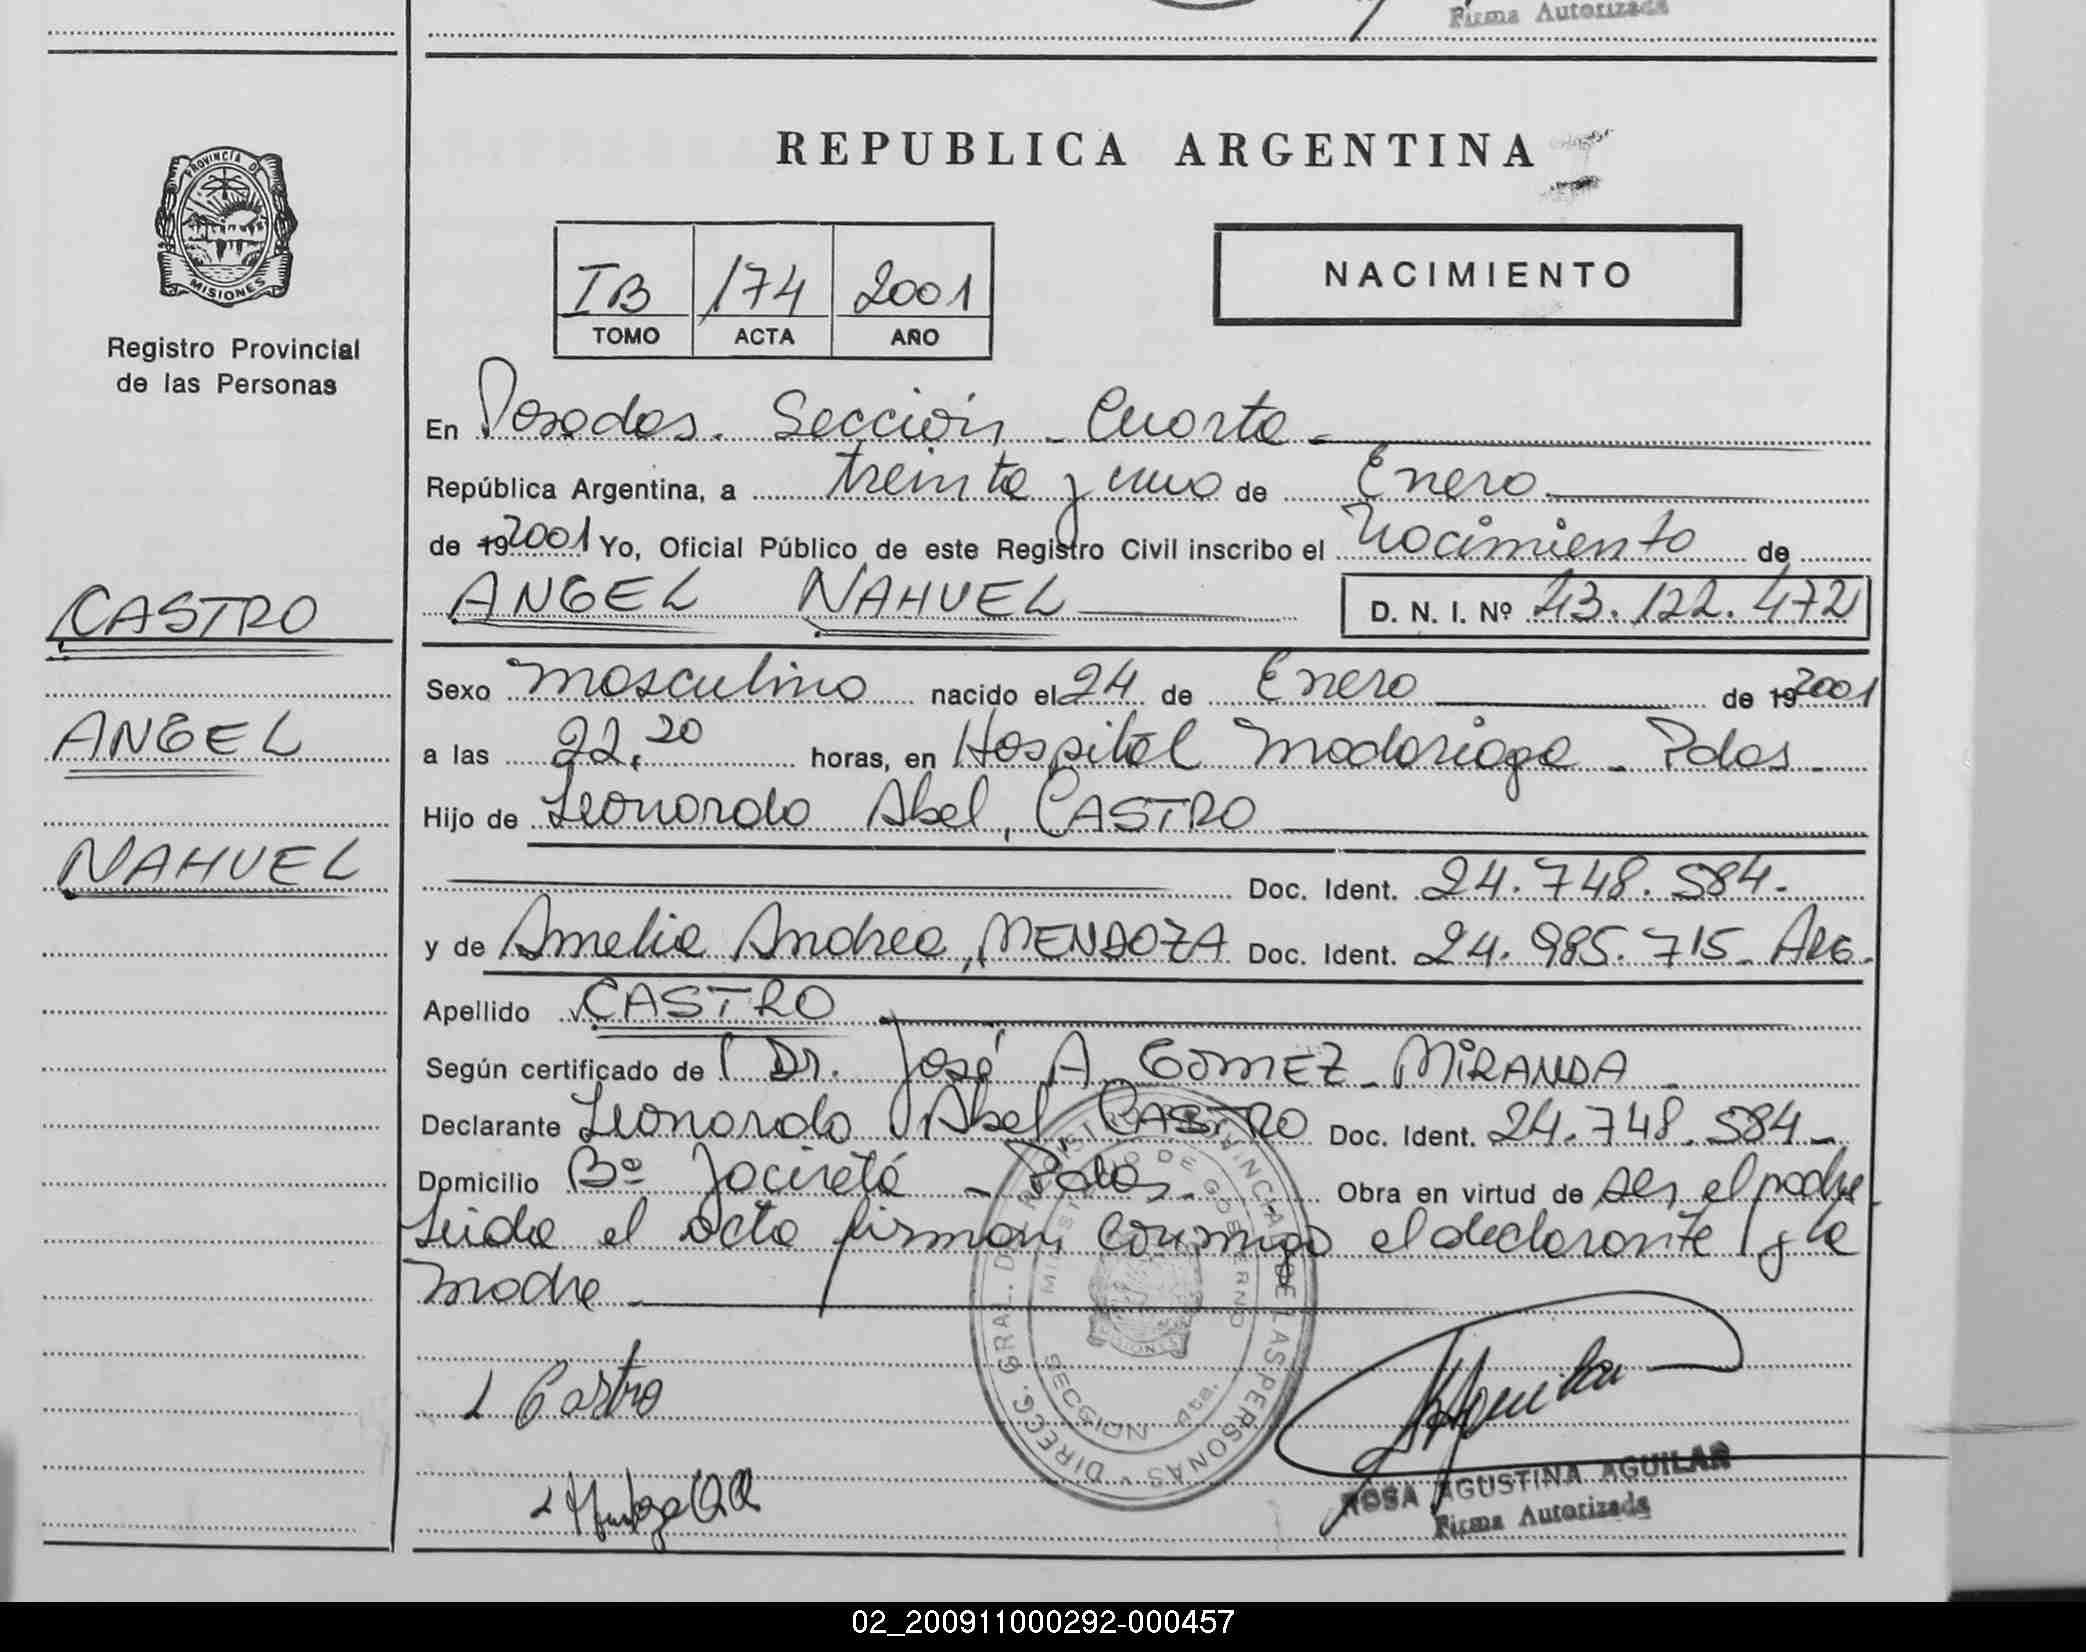 Firma Autorizada
PROVINCIA DE
MISIONES
Registro Provincial
de las Personas
CASTRO
ANGEL
NAHUEL
REPUBLICA ARGENTINA
IB 174 2001
TOMO ACTA AÑO
NACIMIENTO
En Posadas. Sección - Cuarta -
República Argentina, a treinta y uno de Enero
de 19 2001 Yo, Oficial Público de este Registro Civil inscribo el Nacimiento de
ANGEL NAHUEL D. N. I. Nº 43.122.472
Sexo masculino nacido el 24 de Enero de 19 2001
a las 22,20 horas, en Hospital Madariaga - Pdas -
Hijo de Leonardo Abel, CASTRO
Doc. Ident. 24.748.584.
y de Amelia Andrea, MENDOZA Doc. Ident. 24.985.715- ARG.
Apellido CASTRO
Según certificado de Dr. José A. GOMEZ - MIRANDA -
Declarante Leonardo Abel CASTRO Doc. Ident. 24.748.584 -
Domicilio Bº Jaciretá - Pdas. Obra en virtud de ser el padre.
Leida el acta firman conmigo el declarante y la
madre -
L Castro
DIRECC. GRAL. DE LAS PERSONAS
MINISTERIO DE GOBIERNO
SECCION 4ta.
ROSA AGUSTINA AGUILAR
Firma Autorizada
02_200911000292-000457